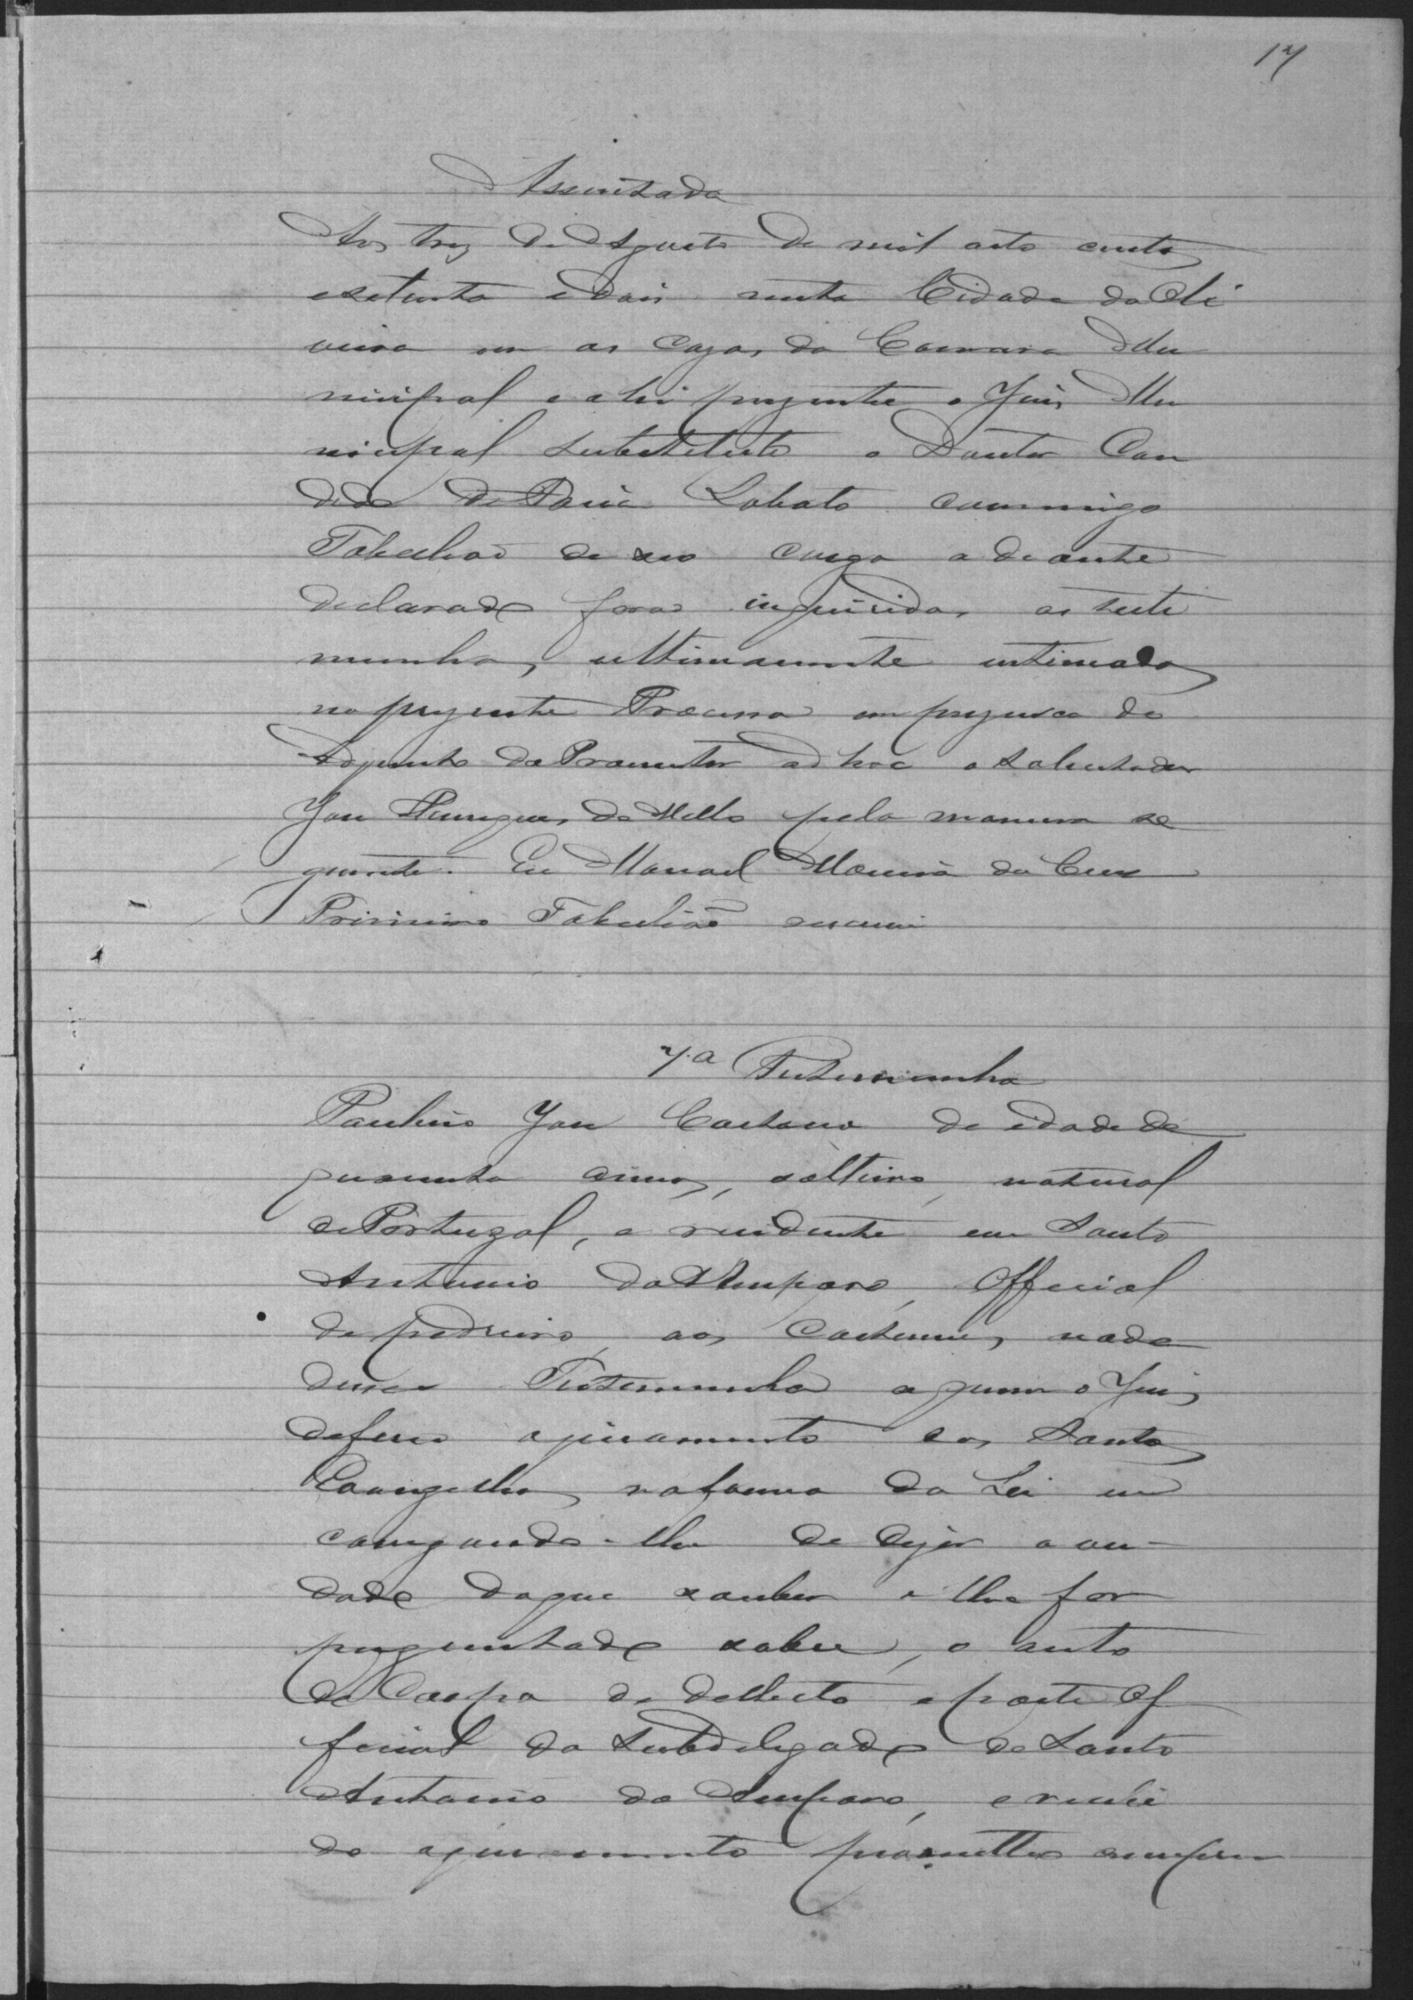 17
Assentada
Aos trez de Agosto de mil oito centos
e setenta e dois nesta Cidade da Oli
veira em as cazas da Camara Mu
nicipal e ahi prezente o Juis Mu
nicipal substituto o Doutor Can
dido de Faria Lobato commigo
Tabeliaõ de seo cargo adeante
declarado foraõ inquiridas as teste
munhas, ultimamente intimadas
no prezente Processo em prezença do
Adjunto do Promotor ad hoc o solicitador
Joze Henriques de Mello pela maneira se
guinte. Eu Manoel Moreira da Cruz
Primeiro Tabeliaõ escrevi
7.a Testemunha
Paulino Joze Caetano de idade de
quarenta annos, solteiro, natural
de Portugal, e residente em Santo
Antonio do Amparo, Official
de pedreiro, aos costumes nada
disse Testemunha a quem o Juis
deferio o juramento aos Santos
Evangelhos na forma da Lei en
carregando-lhe de dizer a ver-
dade do que souber e lhe for
perguntado sobre, o auto
de Corpo de dellicto e parte Of
ficial do Subdelegado de Santo
Antonio do Amparo, e recebi
do o juramento prometteo cumprir